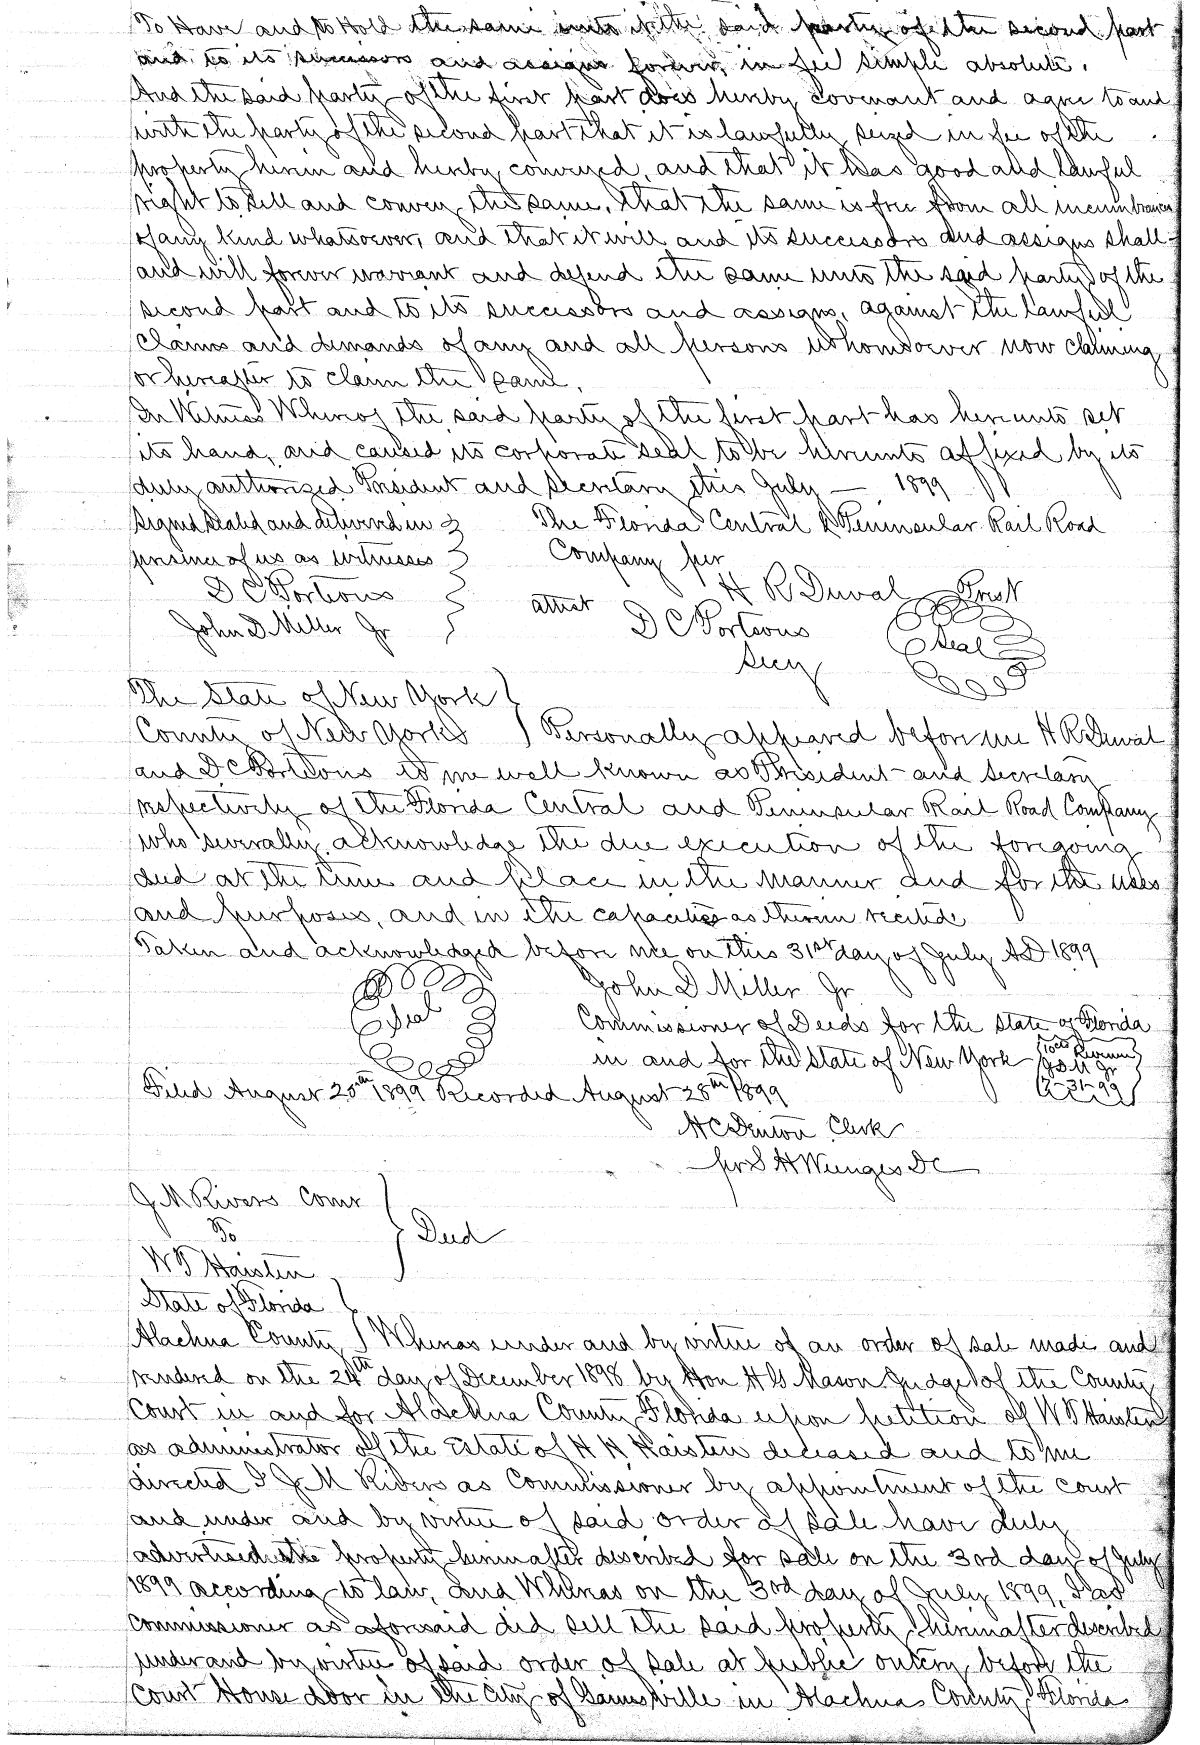 To Have and to Hold the same unto it the said party of the second part
and to its successors and assigns forever, in fee simple absolute.
And the said party of the first part does hereby covenant and agree to and
with the party of the second part that it is lawfully seized in fee of the
property herein and hereby conveyed, and that it has good and lawful
right to sell and convey the same, that the same is free from all incumbrances
of any kind whatsoever, and that it will and its successors and assigns shall
and will forever warrant and defend the same unto the said party of the
second part and to its successors and assigns, against the lawful
claims and demands of any and all persons whomsoever now claiming
or hereafter to claim the same.
In Witness Whereof the said party of the first part has hereunto set
its hand, and caused its corporate seal to be hereunto affixed by its
duly authorized President and Secretary this July — 1899
Signed sealed and delivered in The Florida Central & Peninsular Rail Road
presence of us as witnesses Company per
D C Porteous H R Duval Prest
John D Miller Jr attest D C Porteous Seal
Secy
The State of New York
County of New York Personally appeared before me H R Duval
and D C Porteous to me well known as President and Secretary
respectively of the Florida Central and Peninsular Rail Road Company
who severally acknowledge the due execution of the foregoing
deed at the time and place in the manner and for the uses
and purposes, and in the capacities as therein recited
Taken and acknowledged before me on this 31st day of July AD 1899
John D Miller Jr
Seal Commissioner of Deeds for the State of Florida
in and for the State of New York 10cts Revenue
J D M Jr
7-31-99
Filed August 25th 1899 Recorded August 28th 1899
H C Denton Clerk
per S H Wienges DC
J M Rivers Comr
To Deed
W T Haisten
State of Florida
Alachua County Whereas under and by virtue of an order of sale made and
rendered on the 24th day of December 1898 by Hon H G Mason Judge of the County
Court in and for Alachua County Florida upon petition of W T Haisten
as administrator of the Estate of H H Haisten deceased and to me
directed I J M Rivers as Commissioner by appointment of the court
and under and by virtue of said order of sale have duly
advertised the property hereinafter described for sale on the 3rd day of July
1899 according to law, and Whereas on the 3rd day of July 1899, I as
commissioner as aforesaid did sell the said property hereinafter described
under and by virtue of said order of sale at public outcry before the
Court House door in the City of Gainesville in Alachua County, Florida